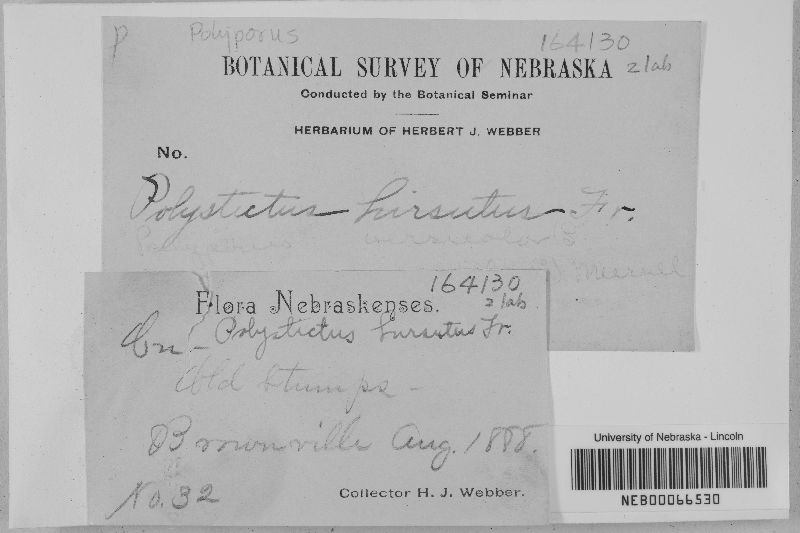 P Polyporus 164130
BOTANICAL SURVEY OF NEBRASKA 2 lab
Conducted by the Botanical Seminar
HERBARIUM OF HERBERT J. WEBBER
No.
Polystictus hirsutus Fr.
versicolor
Merrill
164130
Flora Nebraskenses. 2 lab
On - Polystictus hirsutus Fr.
Old stumps -
Brownville Aug. 1888.
No. 32 Collector H. J. Webber.
University of Nebraska - Lincoln
NEB00066530